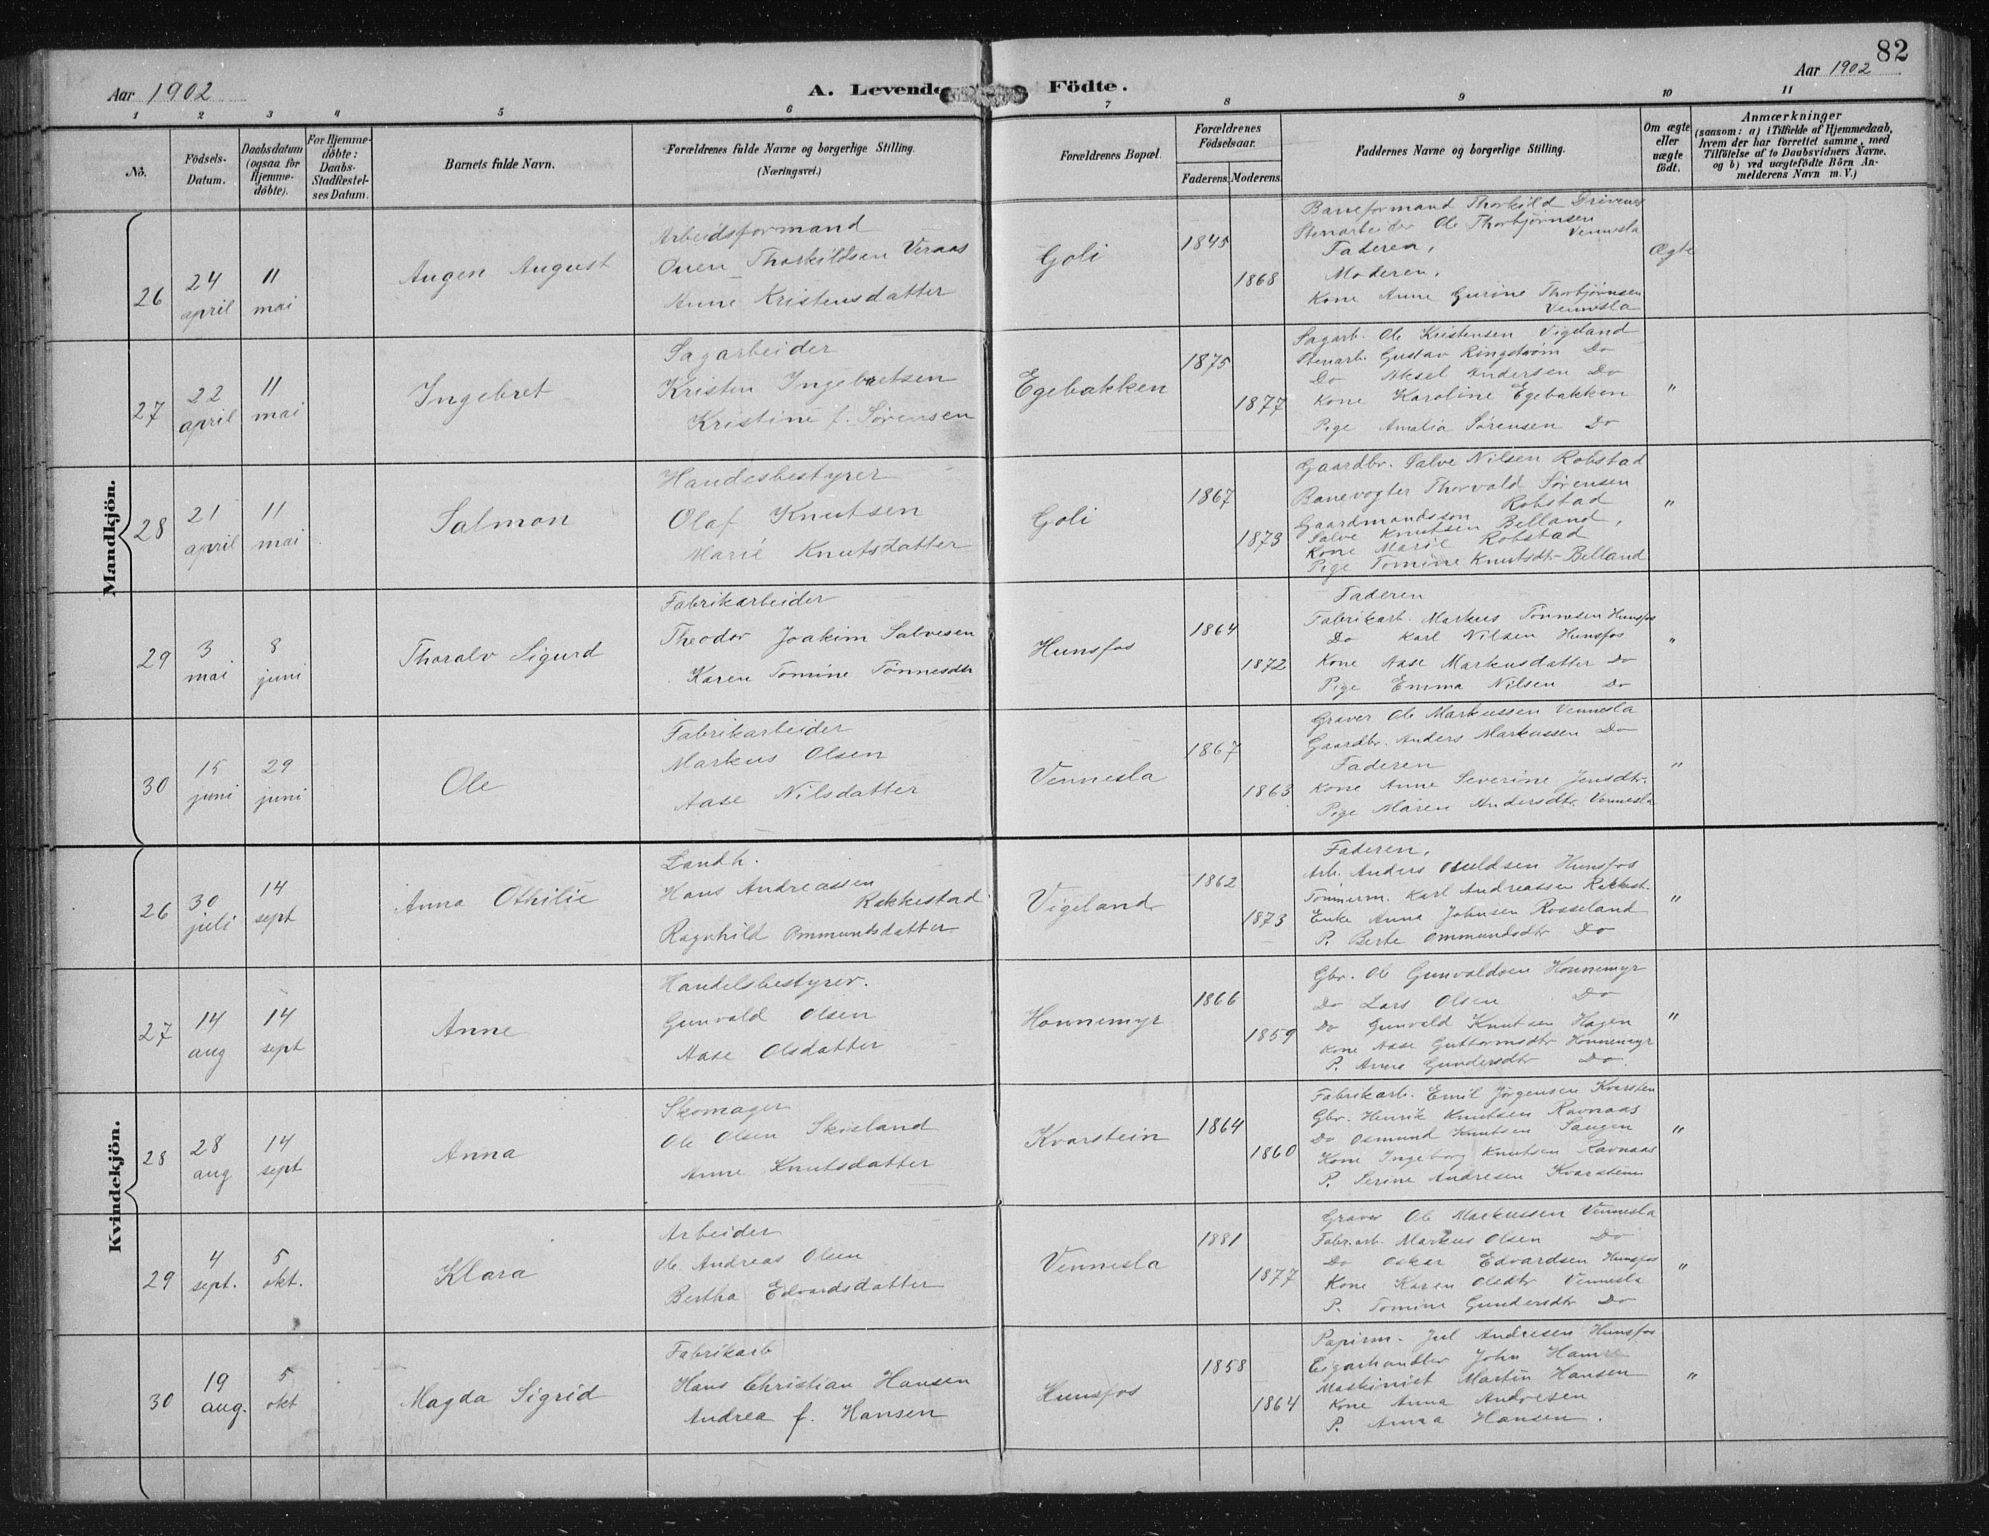 82
Aar 1902
A. Levende Födte.
Aar 1902
1 2 3 4 5 6 7 8 9 10 11
No.
Födsels-Datum.
Daabsdatum (ogsaa for Hjemmedöbte).
For Hjemmedöbte: Daabs-Stadfæstelses Datum.
Barnets fulde Navn.
Forældrenes fulde Navne og borgerlige Stilling.
(Næringsvei.)
Forældrenes Bopæl.
Forældrenes Födselsaar.
Faderens. Moderens.
Faddernes Navne og borgerlige Stilling.
Om ægte eller uægte født.
Anmærkninger
(saasom: a) i Tilfælde af Hjemmedaab, hvem der har forrettet samme, med Tilföielse af to Daabsvidners Navne, og b) ved uægtefödte Börn Anmelderens Navn m. V.)
Mandkjön.
26
24 april
11 mai
Augen August
Arbeidsformand
Ouen Thorkildsen Veraas
Anne Kristensdatter
Goli
1845
1868
Baneformand Thorkild Drivenes
Stenarbeider Ole Thorbjörnsen
Vennesla
Faderen,
Moderen,
Kone Anne Gurine Thorbjörnsen
Vennesla
Ægte
27
22 april
11 mai
Ingebret
Sagarbeider
Kristen Ingebretsen
Kristine f. Sörensen
Egebakken
1875
1877
Sagarb. Ole Kristensen Vigeland
Stenarb. Gustav Ringström Do
Do Aksel Andersen Do
Kone Karoline Egebakken
Pige Amalia Sörensen Do
"
28
21 april
11 mai
Salmon
Handesbestyrer
Olaf Knutsen
Marie Knutsdatter
Goli
1867
1873
Gaardbr. Salve Nilsen Robstad
Banevogter Thorvald Sörensen
Robstad
Gaardmandssön
Salve Knutsen Belland,
Kone Marie Robstad
Pige Tomine Knutsdt. Belland
"
29
3 mai
8 juni
Thoralv Sigurd
Fabrikarbeider
Theodor Joakim Salvesen
Karen Tomine Tönnesdtr
Hunsfos
1864
1872
Faderen
Fabrikarb. Markus Tönnesen Hunsfos
Do Karl Nilsen Hunsfos
Kone Aase Markusdatter Do
Pige Emma Nilsen Do
"
30
15 juni
29 juni
Ole
Fabrikarbeider
Markus Olsen
Aase Nilsdatter
Vennesla
1867
1863
Graver Ole Markussen Vennesla
Gaardbr. Anders Markussen Do
Faderen
Kone Anne Severine Jensdtr.
Pige Maren Andersdtr. Vennesla
"
Kvindekjön.
26
30 juli
14 sept
Anna Othilie
Landh.
Hans Andreassen
Rakkestad
Ragnhild Ommundsdatter
Vigeland
1862
1873
Faderen,
Arb. Anders Hunsfos
Tömmerm. Karl Andreassen Rakkest.
Enke Anna Johnsen Rosseland
P. Berte Ommundsdtr Do
"
27
14 aug
14 sept
Anne
Handelsbestyrer.
Gunvald Olsen
Aase Olsdatter
Honnemyr
1866
1859
Gbr. Ole Gunvaldsen Honnemyr
Do Lars Olsen Do
Do Gunvald Knutsen Hagen
Kone Aase Guttormsdtr Honnemyr
P. Anne Gundersdtr Do
"
28
28 aug
14 sept
Anna
Skomager
Ole Olsen Skisland
Anne Knutsdatter
Kvarstein
1864
1860
Fabrikarb. Emil Jörgensen Kvarsten
Gbr. Henrik Knutsen Ravnaas
Do Osmund Knutsen Saugen
Kone Ingeborg Knutsen Ravnaas
P. Serine Andresen Kvarstein
"
29
4 sept.
5 okt.
Klara
Arbeider
Ole Andreas Olsen
Bertha Edvardsdatter
Vennesla
1881
1877
Graver Ole Markussen Vennesla
Fabr.arb. Markus Olsen Do
Do Oskar Edvardsen Hunsfos
Kone Karen Olsdtr Vennesla
P. Tomine Gundersdtr Do
"
30
19 aug.
5 okt
Magda Sigrid
Fabrikarb
Hans Christian Hansen
Andrea f. Hansen
Hunsfos
1858
1864
Papirm. Jul Andresen Hunsfos
Cigarhandler John Hamre
Maskinist Martin Hansen
Kone Anna Andresen
P. Anna Hansen.
"